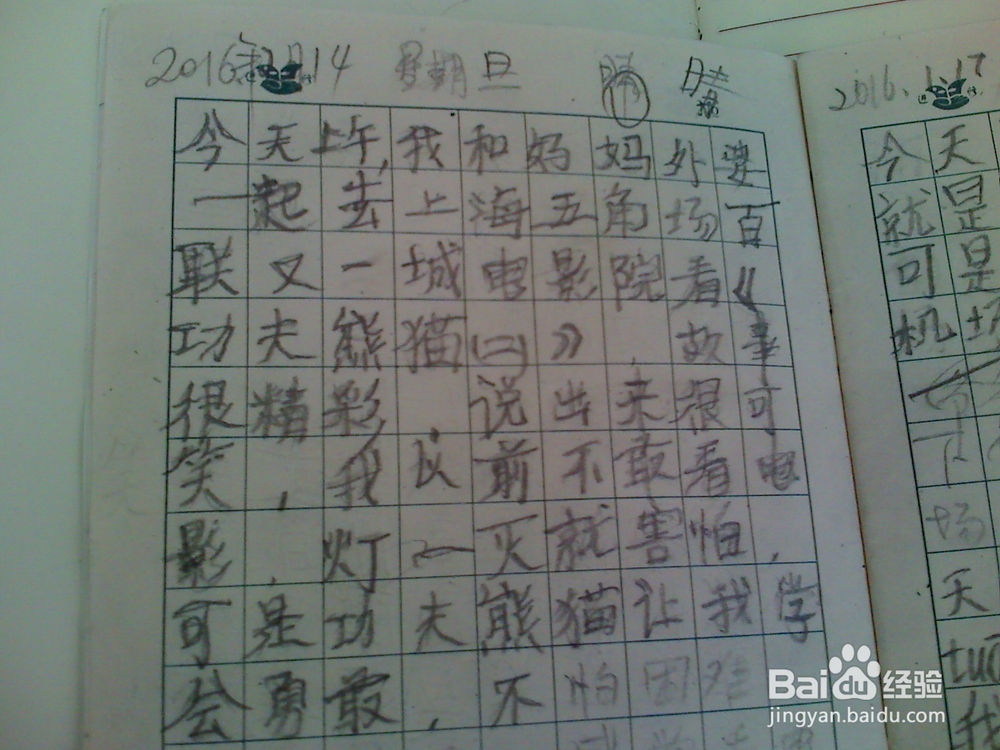 2016年2月14 星期旦 晴
今天上午,我和妈妈外婆
一起去上海五角场百
联又一城电影院看《
功夫熊猫(二)》,故事
很精彩,说出来很可
笑,我以前不敢看电
影,灯一灭就害怕,
可是功夫熊猫让我学
会勇敢,不怕困难
2016.1.17
今天
就是
可是
机场
下
场
天
我
Baidu经验
jingyan.baidu.com